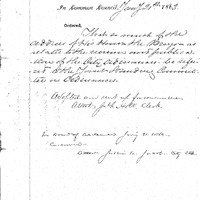 In Common Council, Jany 29th 1863.
Ordered,
That so much of the
address of His Honor the Mayor as
relates to the revision and publica
tion of the City Ordinances be refer
red to the Joint Standing Committee
on Ordinances.
Adopted and sent up for concurrence
Attest, Clerk.
In Board of
Concurred